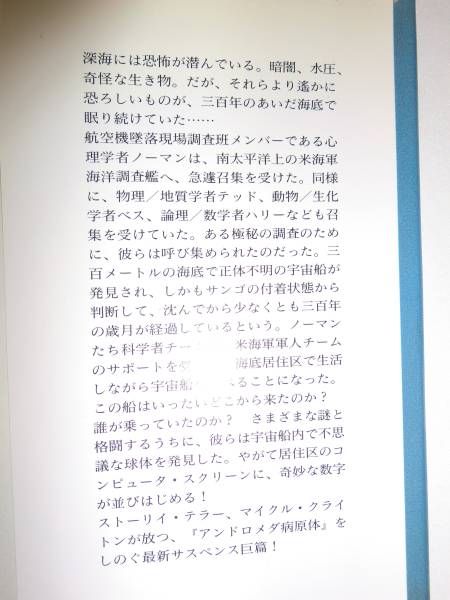 深海には恐怖が潜んでいる。暗闇、水圧、
奇怪な生き物。だが、それらより遙かに
恐ろしいものが、三百年のあいだ海底で
眠り続けていた……
航空機墜落現場調査班メンバーである心
理学者ノーマンは、南太平洋上の米海軍
海洋調査艦へ、急遽召集を受けた。同様
に、物理／地質学者テッド、動物／生化
学者ベス、論理／数学者ハリーなども召
集を受けていた。ある極秘の調査のため
に、彼らは呼び集められたのだった。三
百メートルの海底で正体不明の宇宙船が
発見され、しかもサンゴの付着状態から
判断して、沈んでから少なくとも三百年
の歳月が経過しているという。ノーマン
たち科学者チー 米海軍軍人チーム
のサポートを 海底居住区で生活
しながら宇宙船 ることになった。
この船はいったいどこから来たのか？
誰が乗っていたのか？　さまざまな謎と
格闘するうちに、彼らは宇宙船内で不思
議な球体を発見した。やがて居住区のコ
ンピュータ・スクリーンに、奇妙な数字
が並びはじめる！
ストーリイ・テラー、マイクル・クライ
トンが放つ、『アンドロメダ病原体』を
しのぐ最新サスペンス巨篇！